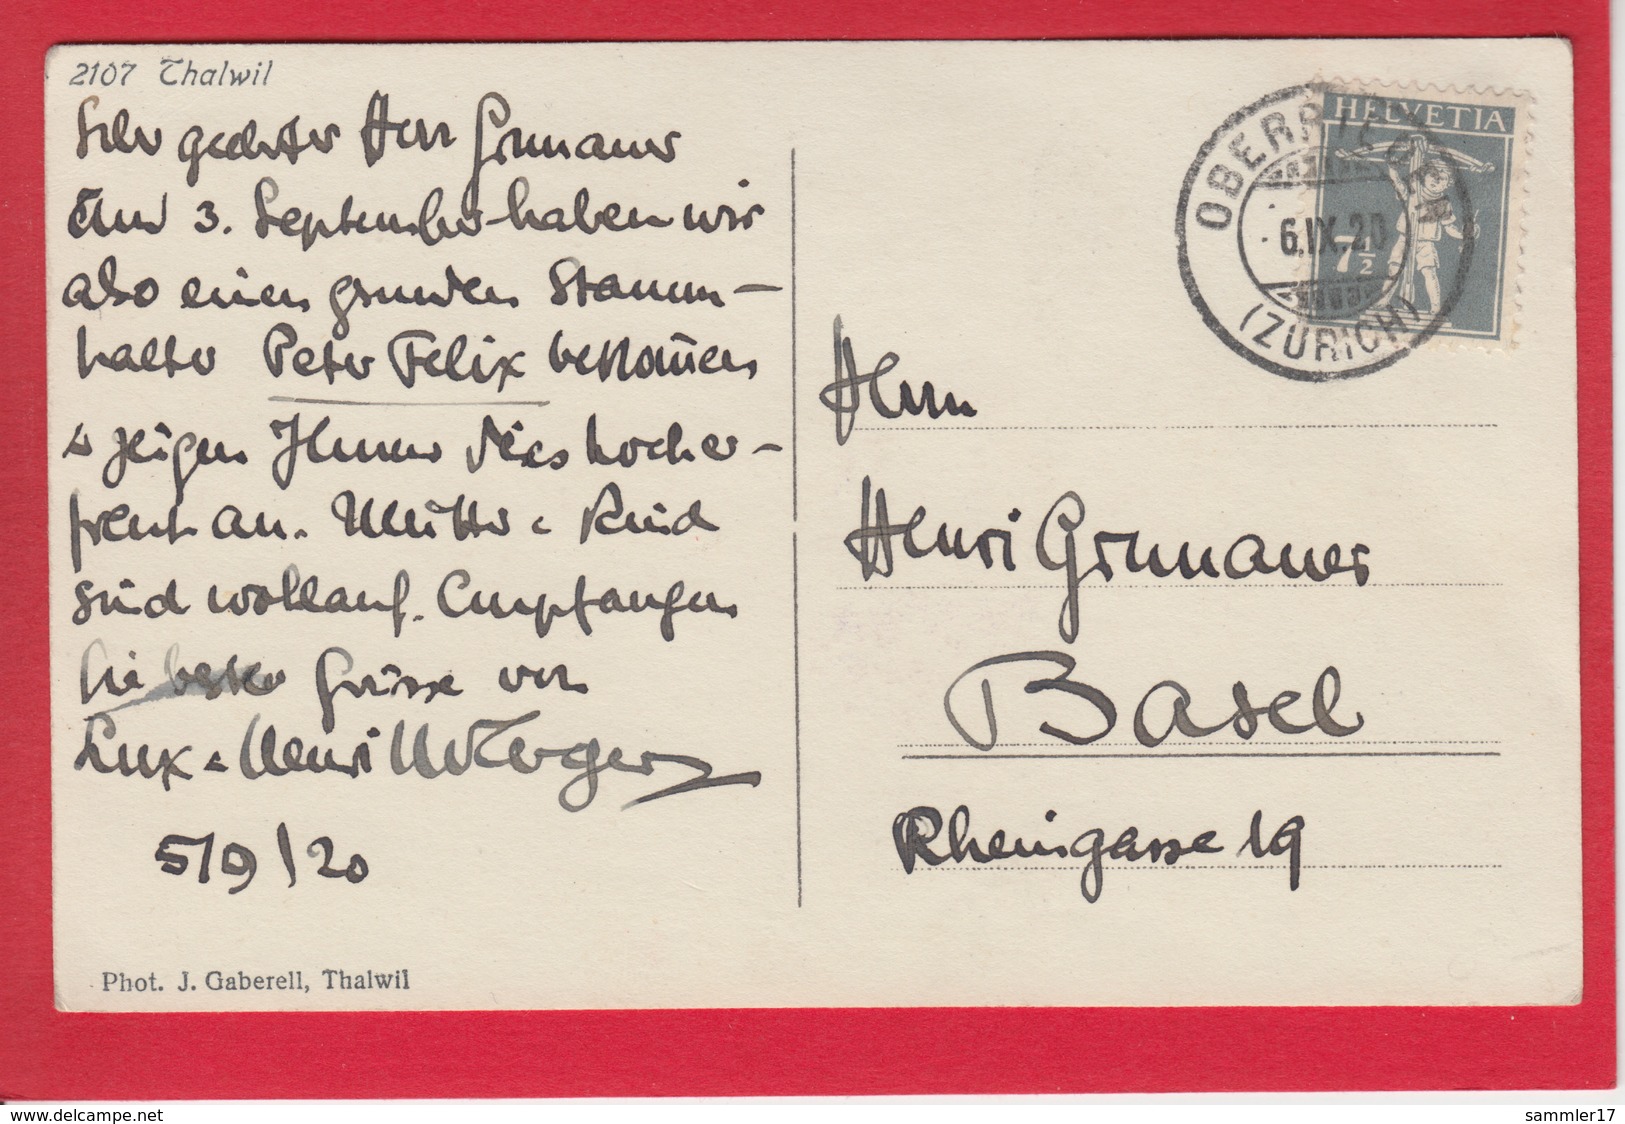 2107 Thalwil
Sehr geehrter Herr Grunauer
Am 3. September haben wir
also einen gesunden Stamm-
halter Peter Felix bekommen
& zeigen Ihnen dies hocher-
freut an. Mutter & Kind
sind wohlauf. Empfangen
Sie beste Grüsse von
Lux & Henri
5/9/20
Phot. J. Gaberell, Thalwil
HELVETIA
7½
OBERRIEDEN
6.IX.20
(ZÜRICH)
Herrn
Henri Grunauer
Basel
Rheingasse 19
delcampe.net
sammler17